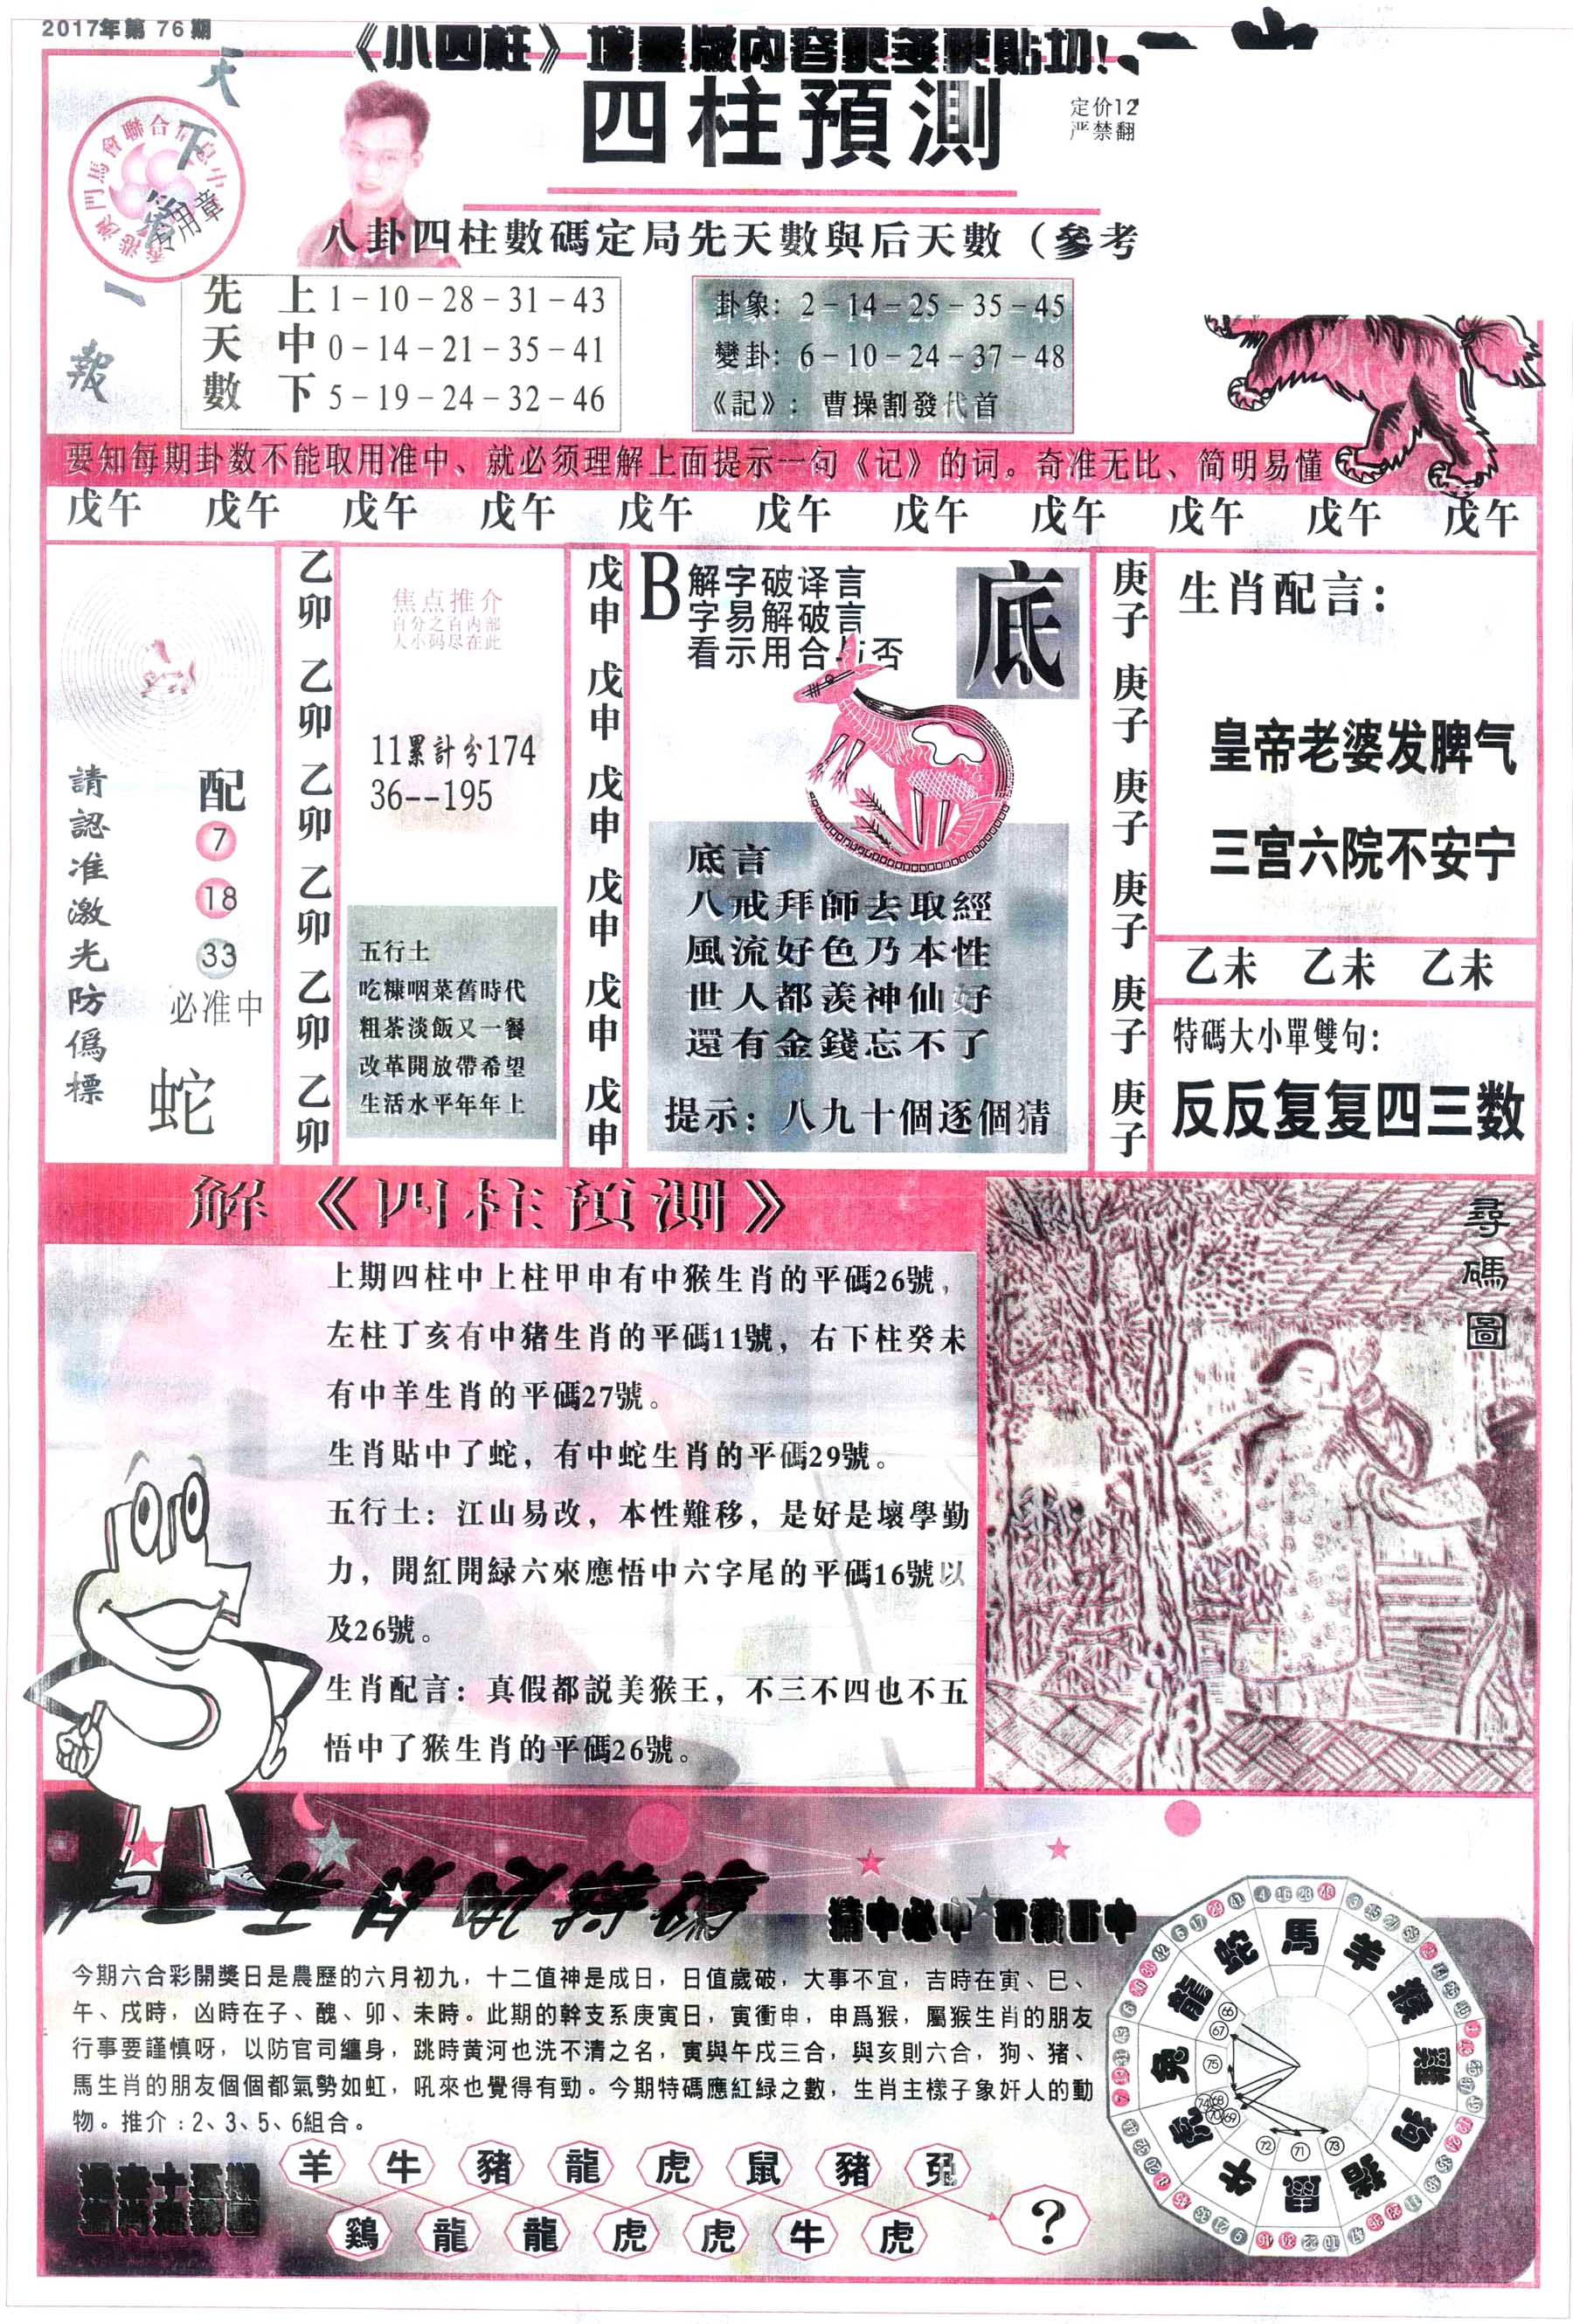 2017年第 76 期
《小四柱》增量版内容更多更貼切！
四柱預測
定价12
严禁翻
天
下
第
一
報
專用章
八卦四柱數碼定局先天數與后天數（參考
先天數
上 1－10－28－31－43
中 0－14－21－35－41
下 5－19－24－32－46
卦象：2－14－25－35－45
變卦：6－10－24－37－48
《記》：曹操割發代首
要知每期卦数不能取用准中、就必须理解上面提示一句《记》的词。奇准无比、简明易懂
戊午 戊午 戊午 戊午 戊午 戊午 戊午 戊午 戊午 戊午 戊午
請認准激光防僞標
配
7
18
33
必准中
蛇
乙卯 乙卯 乙卯 乙卯 乙卯 乙卯
焦点推介
百分之百内部
大小码尽在此
11累計分174
36--195
五行土
吃糠咽菜舊時代
粗茶淡飯又一餐
改革開放帶希望
生活水平年年上
戊申 戊申 戊申 戊申 戊申 戊申
B
解字破译言
字易解破言
看示用合与否
底
底言
八戒拜師去取經
風流好色乃本性
世人都羨神仙好
還有金錢忘不了
提示：八九十個逐個猜
庚子 庚子 庚子 庚子 庚子 庚子
生肖配言：
皇帝老婆发脾气
三宫六院不安宁
乙未 乙未 乙未
特碼大小單雙句：
反反复复四三数
解《四柱預測》
上期四柱中上柱甲申有中猴生肖的平碼26號，
左柱丁亥有中猪生肖的平碼11號，右下柱癸未
有中羊生肖的平碼27號。
生肖貼中了蛇，有中蛇生肖的平碼29號。
五行土：江山易改，本性難移，是好是壞學勤
力，開紅開緑六來應悟中六字尾的平碼16號以
及26號。
生肖配言：真假都説美猴王，不三不四也不五
悟中了猴生肖的平碼26號。
尋碼圖
今期六合彩開獎日是農歷的六月初九，十二值神是成日，日值歲破，大事不宜，吉時在寅、巳、
午、戌時，凶時在子、醜、卯、未時。此期的幹支系庚寅日，寅衝申，申爲猴，屬猴生肖的朋友
行事要謹慎呀，以防官司纏身，跳時黄河也洗不清之名，寅與午戌三合，與亥則六合，狗、猪、
馬生肖的朋友個個都氣勢如虹，吼來也覺得有勁。今期特碼應紅緑之數，生肖主樣子象奸人的動
物。推介：2、3、5、6組合。
羊 牛 豬 龍 虎 鼠 豬 兔
鷄 龍 龍 虎 虎 牛 虎 ?
馬 羊 猴 雞 狗 豬 鼠 牛 虎 兔 龍 蛇
66
67
75
74 68
70 69
72 71 73